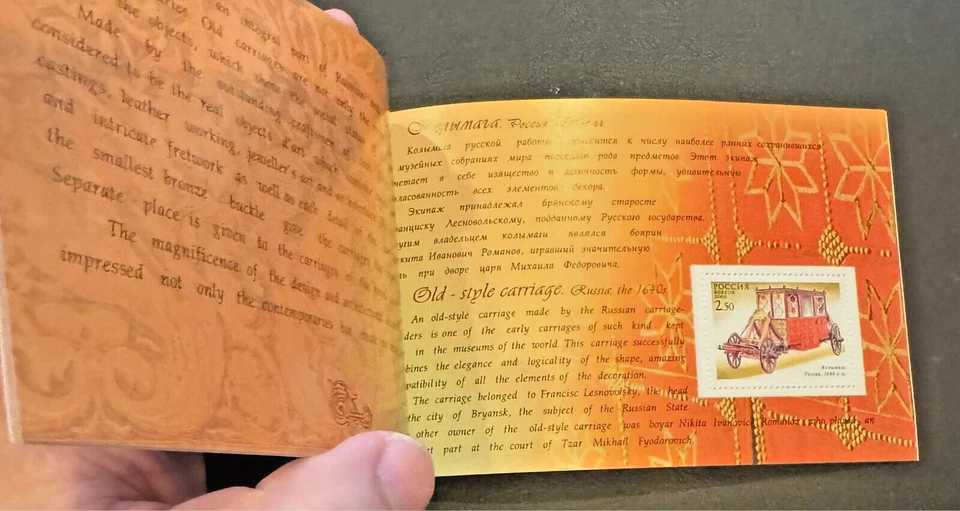 an integral part of Russian
Old carriages are not only the
the objects, which show the
Made by the outstanding craftsmen
considered to be the real objects d'art, which
castings, leather working, jeweller's art and
and intricate fretwork as well as each
the smallest bronze buckle give the
Separate place is given to the carriages
The magnificence of the design and
impressed not only the contemporaries but
Колымага. Россия
Колымага русской работы относится к числу наиболее ранних сохранившихся
музейных собраниях мира рода предметов Этот экипаж
четает в себе изящество и логичность формы, удивительную
ласованность всех элементов декора.
Экипаж принадлежал брянскому старосте
анциску Лесновольскому, подданному Русского государства.
угим владельцем колымаги являлся боярин
кита Иванович Романов, игравший значительную
ь при дворе царя Михаила Федоровича.
Old - style carriage. Russia, the 1640s
An old-style carriage made by the Russian carriage-
ders is one of the early carriages of such kind kept
in the museums of the world. This carriage successfully
bines the elegance and logicality of the shape, amazing
patibility of all the elements of the decoration.
The carriage belonged to Francisc Lesnovolsky, the head
the city of Bryansk, the subject of the Russian State
other owner of the old-style carriage was boyar Nikita Ivanovich Romanov who played an
t part at the court of Tzar Mikhail Fyodorovich.
РОССИЯ
ROSSIJA
2002
2.50
Колымага.
Россия, 1640-е гг.